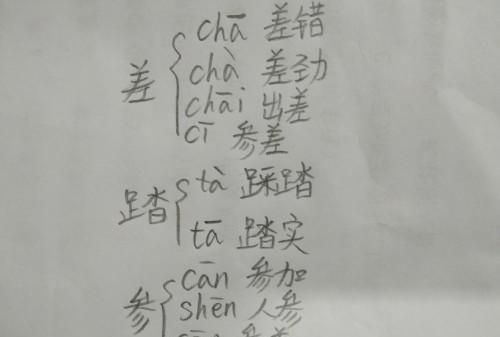 chā 差错
差 chà 差劲
chāi 出差
cī 参差
踏 tà 踩踏
tā 踏实
cān 参加
参 shēn 人参